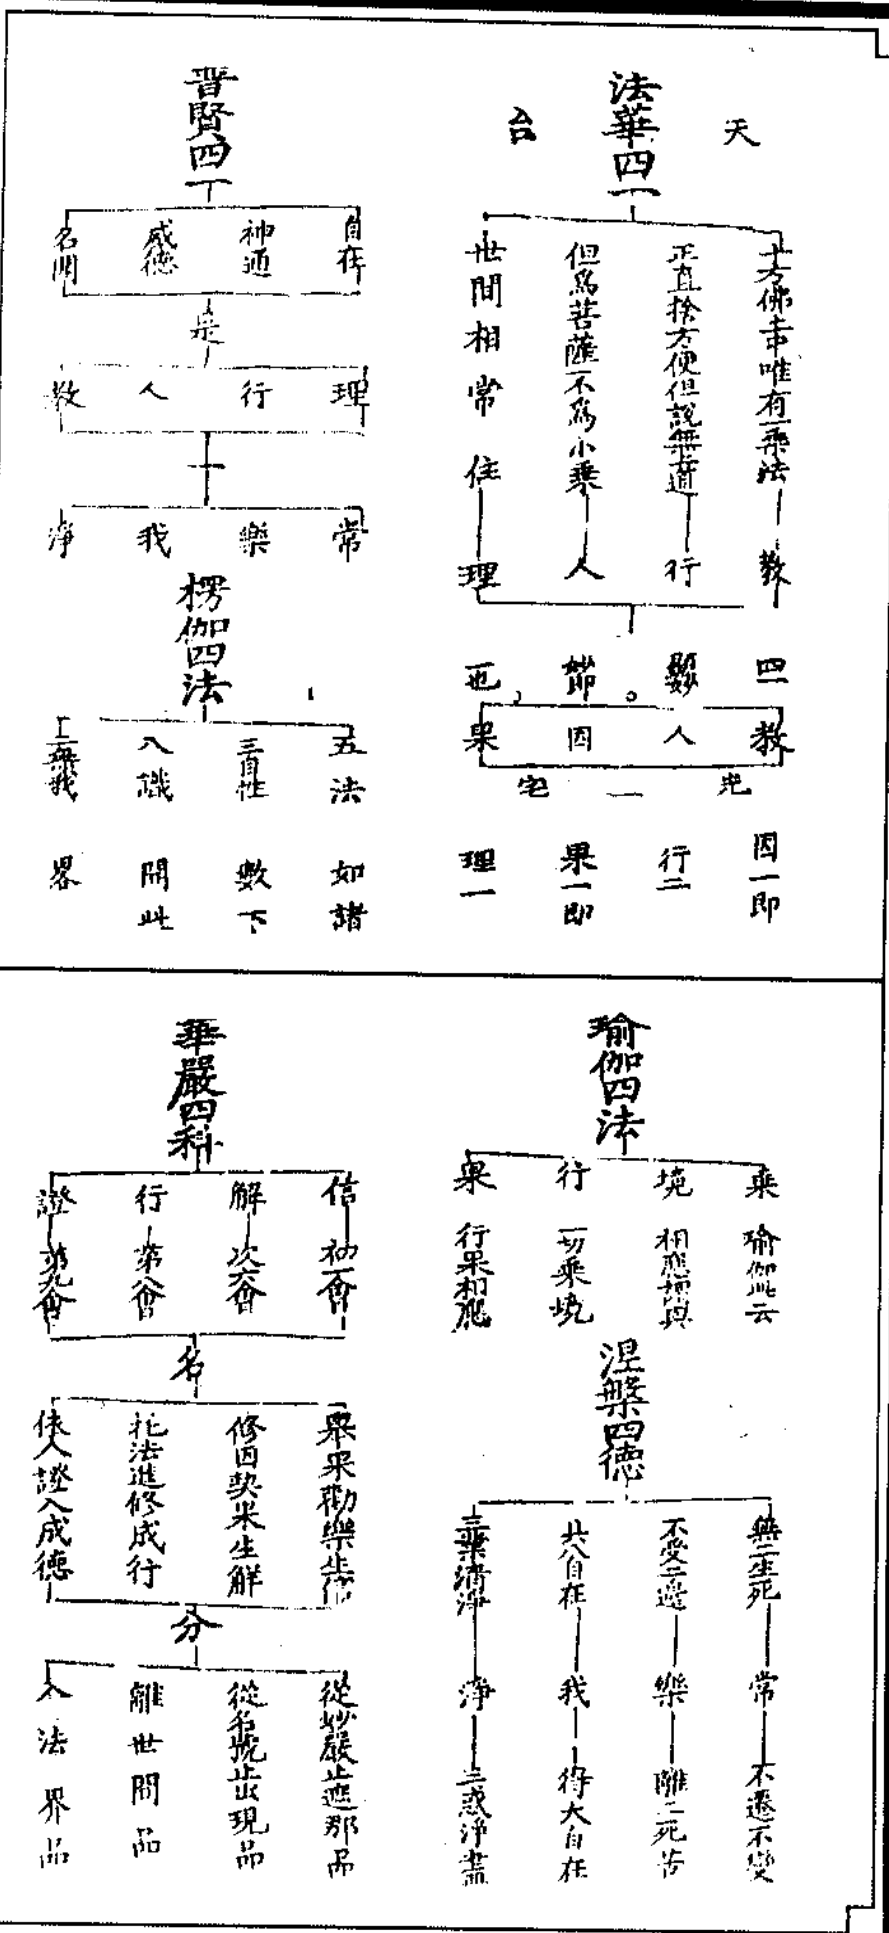 天
台
法華四一
十方佛土中唯有一乘法
教
正直捨方便但說無上道
行
但爲菩薩不爲小乘
人
世間相常住
理
四一
顯妙
妙即
也
教
人
因
果
光
一
宅
因一即
行二
果一即
理一
普賢四
自在
神通
威德
名聞
是
理
行
人
教
十
常
樂
我
淨
楞伽四法
五法
三自性
八識
二無我
如諸
數下
開此
畧
瑜伽四法
乘
瑜伽此云
境
相應謂與
行
一切乘境
果
行果相應
涅槃四德
無二生死
常
不遷不變
不受二邊
樂
離二死苦
具八自在
我
得大自在
三業清淨
淨
三惑淨盡
華嚴四科
信
初一會
解
次六會
行
第八會
證
第九會
名
舉果勸樂生信
修因契果生解
托法進修成行
依人證入成德
分
從妙嚴止遮那品
從名號止出現品
離世間品
入法界品